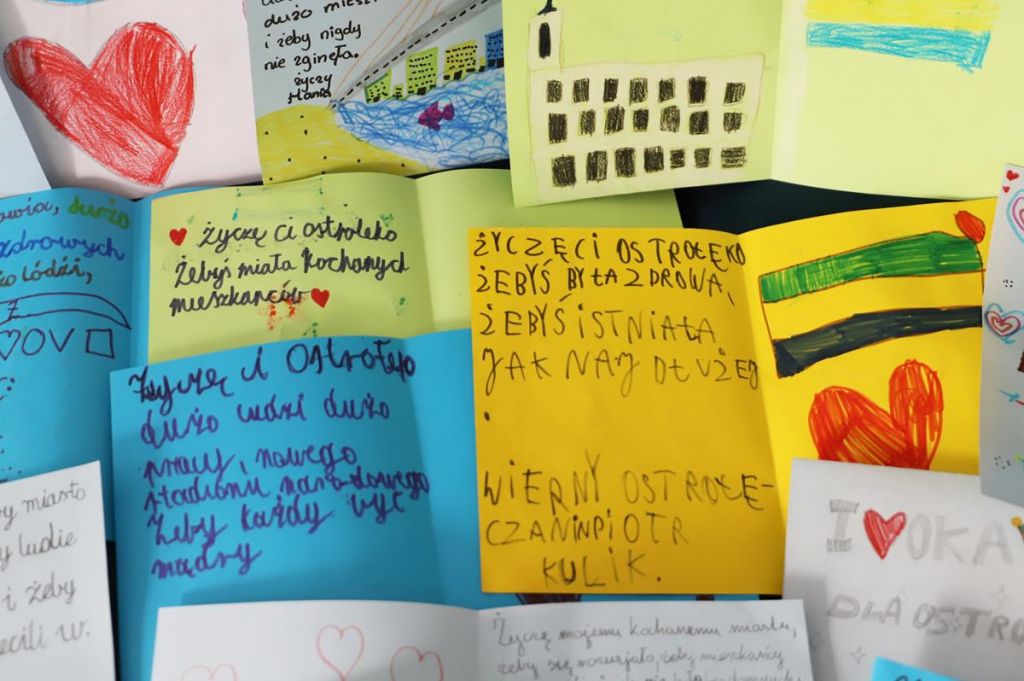 dużo miesz
i żeby nigdy
nie zginęła.
życzy
Hania
owia, dużo
zdrowych
ko łódźi,
Życzę Ci ostroleko
Żebyś miała kochanych
mieszkańców
Życzę ci Ostrołęp
dużo ludzi dużo
pracy, nowego
stadionu narodowego
Żeby każdy był
mądry
ŻYCZĘCI OSTROŁĘKO
ŻEBYŚ BYŁA ZDROWA,
ŻEBYŚ ISTNIAŁA
JAK NAJ DŁUŻEJ
.
WIERNY OSTROŁĘ-
CZANINPIOTR
KULIK.
y miasto
y ludie
i żeby
ecili w.
I OKA
DLA OSTRO
Życzę mojemu kochanemu miastu,
żeby się rozwijało, żeby mieszkańcy